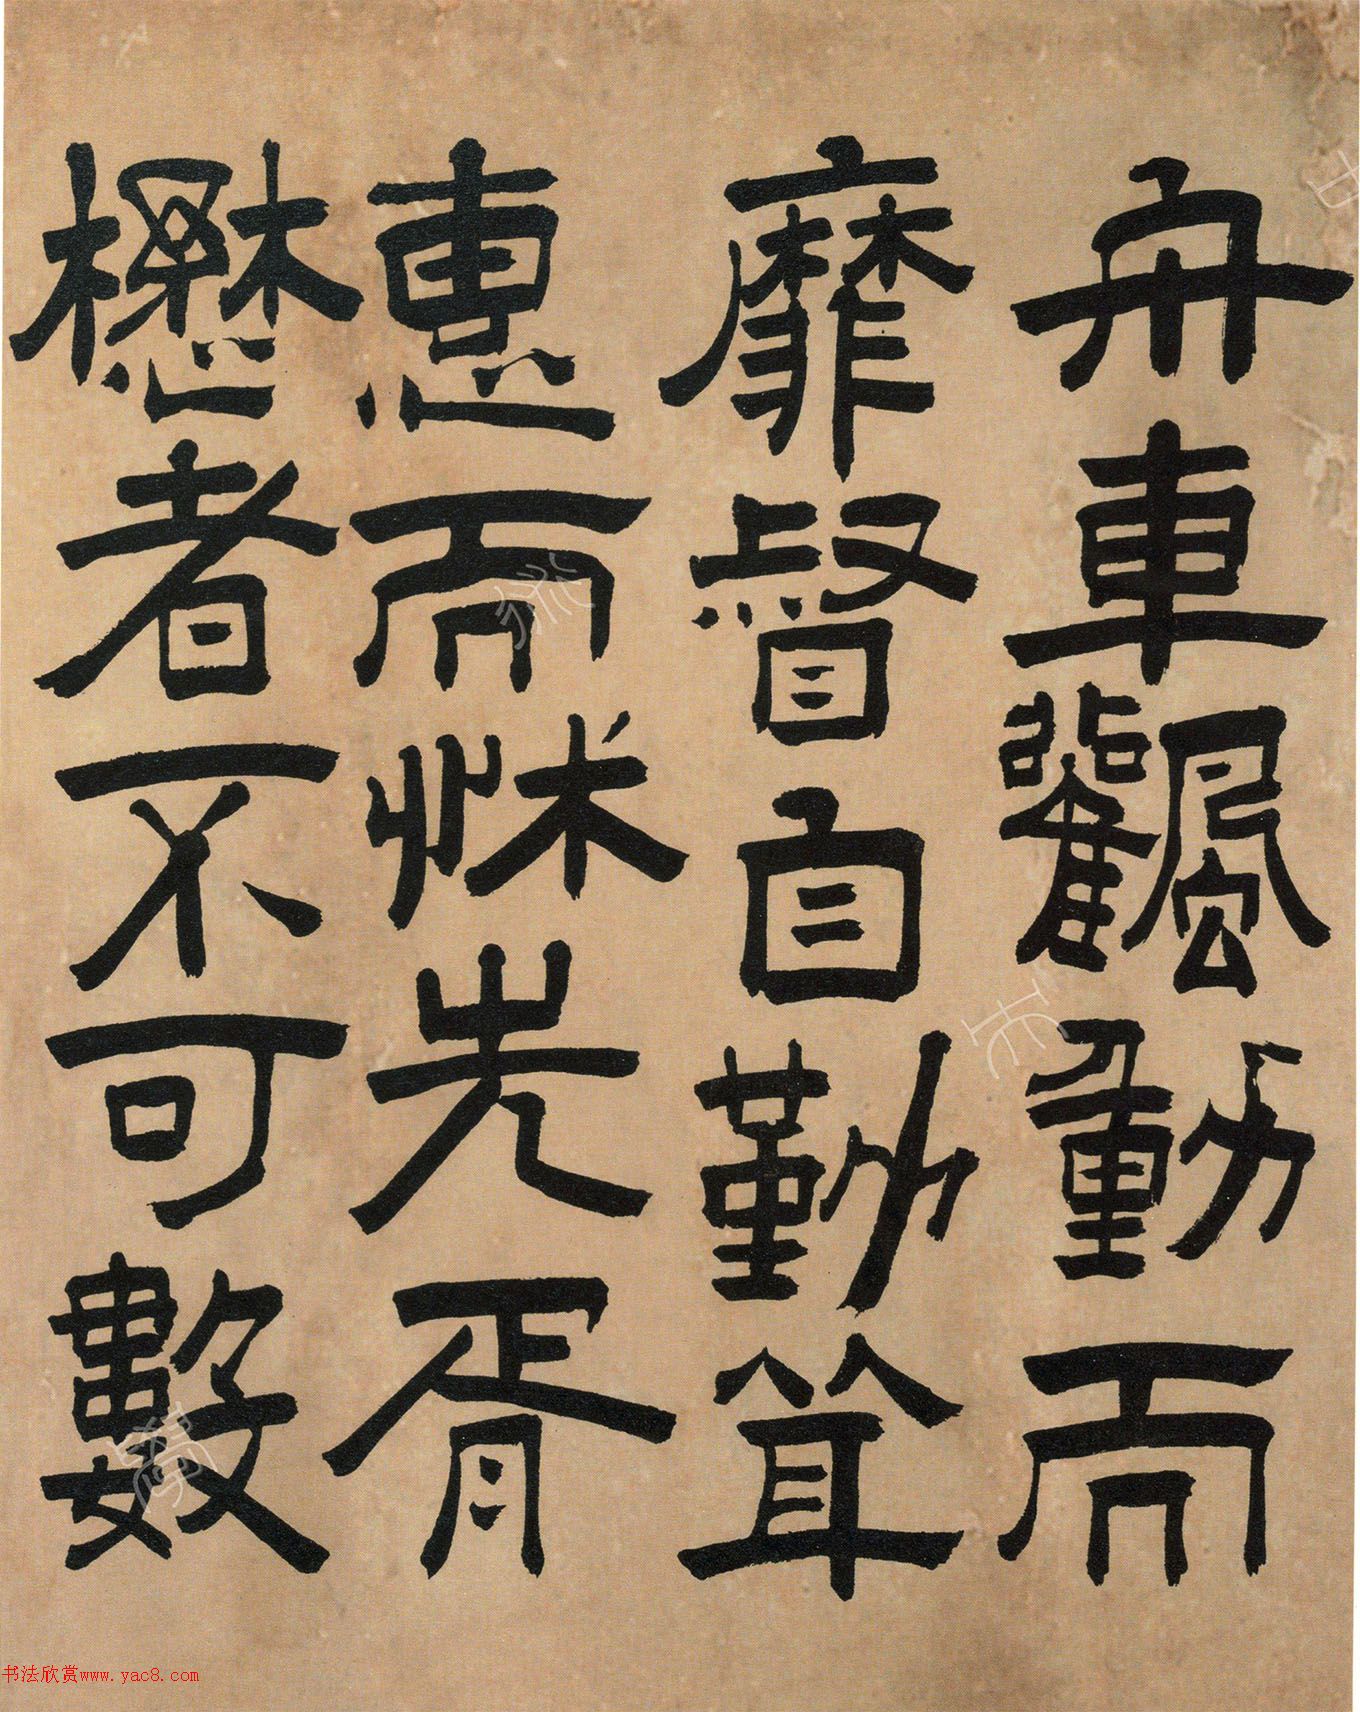 舟車飌動而
靡督自勤耸
恵而怵先胥
懋者不可數
书法欣赏www.yac8.com